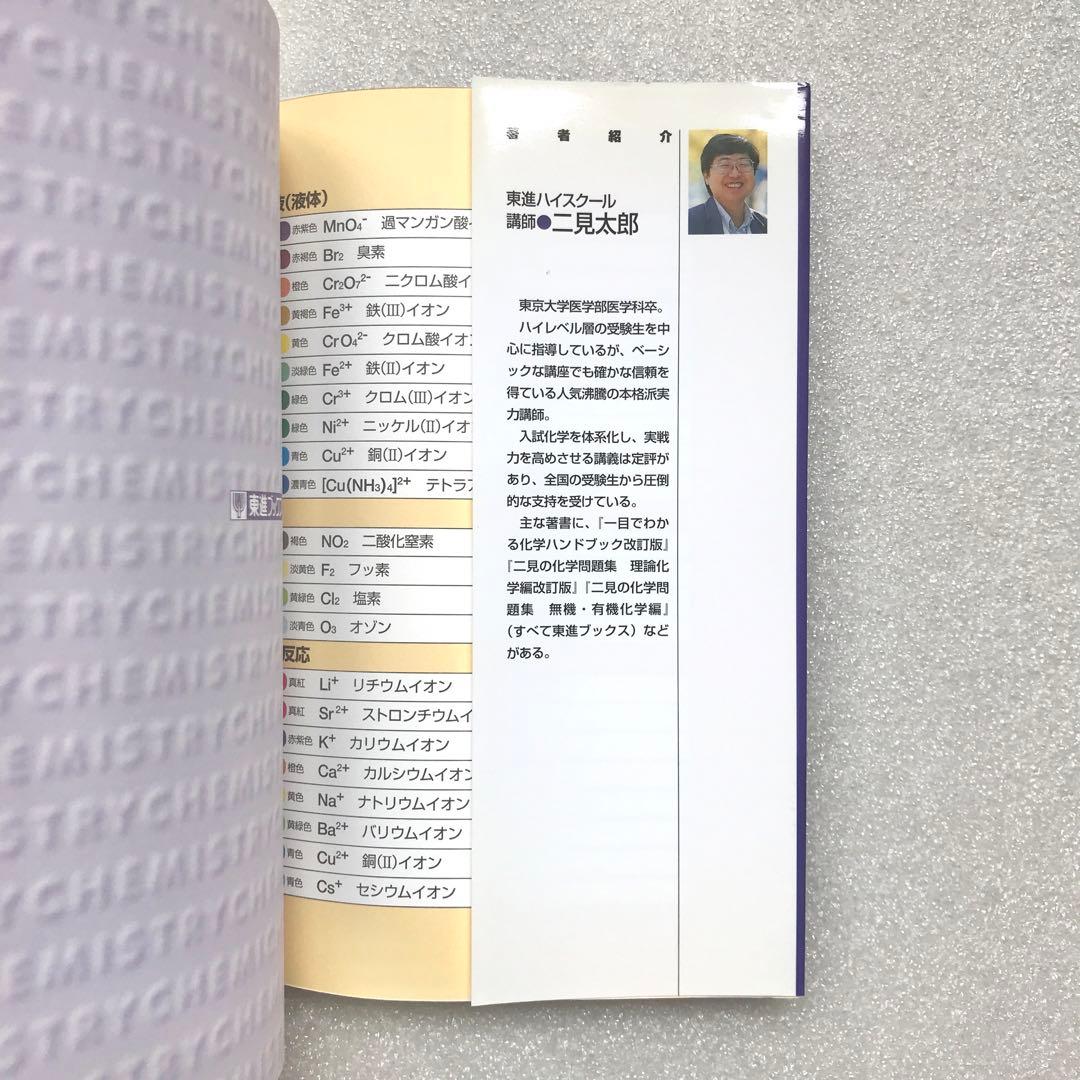 CHEMISTRY
東進ブック
(液体)
赤紫色 MnO₄⁻ 過マンガン酸
赤褐色 Br₂ 臭素
橙色 Cr₂O₇²⁻ ニクロム酸イ
黄褐色 Fe³⁺ 鉄(III)イオン
黄色 CrO₄²⁻ クロム酸イオ
淡緑色 Fe²⁺ 鉄(II)イオン
緑色 Cr³⁺ クロム(III)イオン
緑色 Ni²⁺ ニッケル(II)イオ
青色 Cu²⁺ 銅(II)イオン
濃青色 [Cu(NH₃)₄]²⁺ テトラ
褐色 NO₂ 二酸化窒素
淡黄色 F₂ フッ素
黄緑色 Cl₂ 塩素
淡青色 O₃ オゾン
反応
真紅 Li⁺ リチウムイオン
真紅 Sr²⁺ ストロンチウムイ
赤紫色 K⁺ カリウムイオン
橙色 Ca²⁺ カルシウムイオン
黄色 Na⁺ ナトリウムイオン
黄緑色 Ba²⁺ バリウムイオン
青色 Cu²⁺ 銅(II)イオン
青色 Cs⁺ セシウムイオン
著者紹介
東進ハイスクール
講師●二見太郎
東京大学医学部医学科卒。
ハイレベル層の受験生を中
心に指導しているが、ベーシ
ックな講座でも確かな信頼を
得ている人気沸騰の本格派実
力講師。
入試化学を体系化し、実戦
力を高めさせる講義は定評が
あり、全国の受験生から圧倒
的な支持を受けている。
主な著書に、『一目でわか
る化学ハンドブック改訂版』
『二見の化学問題集 理論化
学編改訂版』『二見の化学問
題集 無機・有機化学編』
(すべて東進ブックス)など
がある。